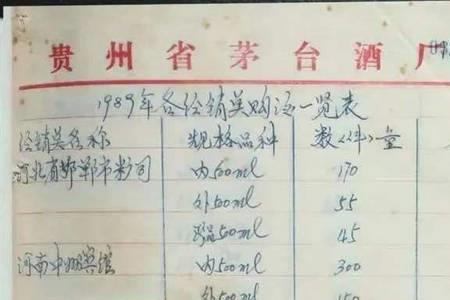 贵州省茅台酒厂
1989年各经销美购酒一览表
经销美名称 规格品种 数(件)量
河北省邯郸市 司 内500ml 170
外500ml 55
500ml 45
河南中州宾馆 内500ml 300
外500ml 150